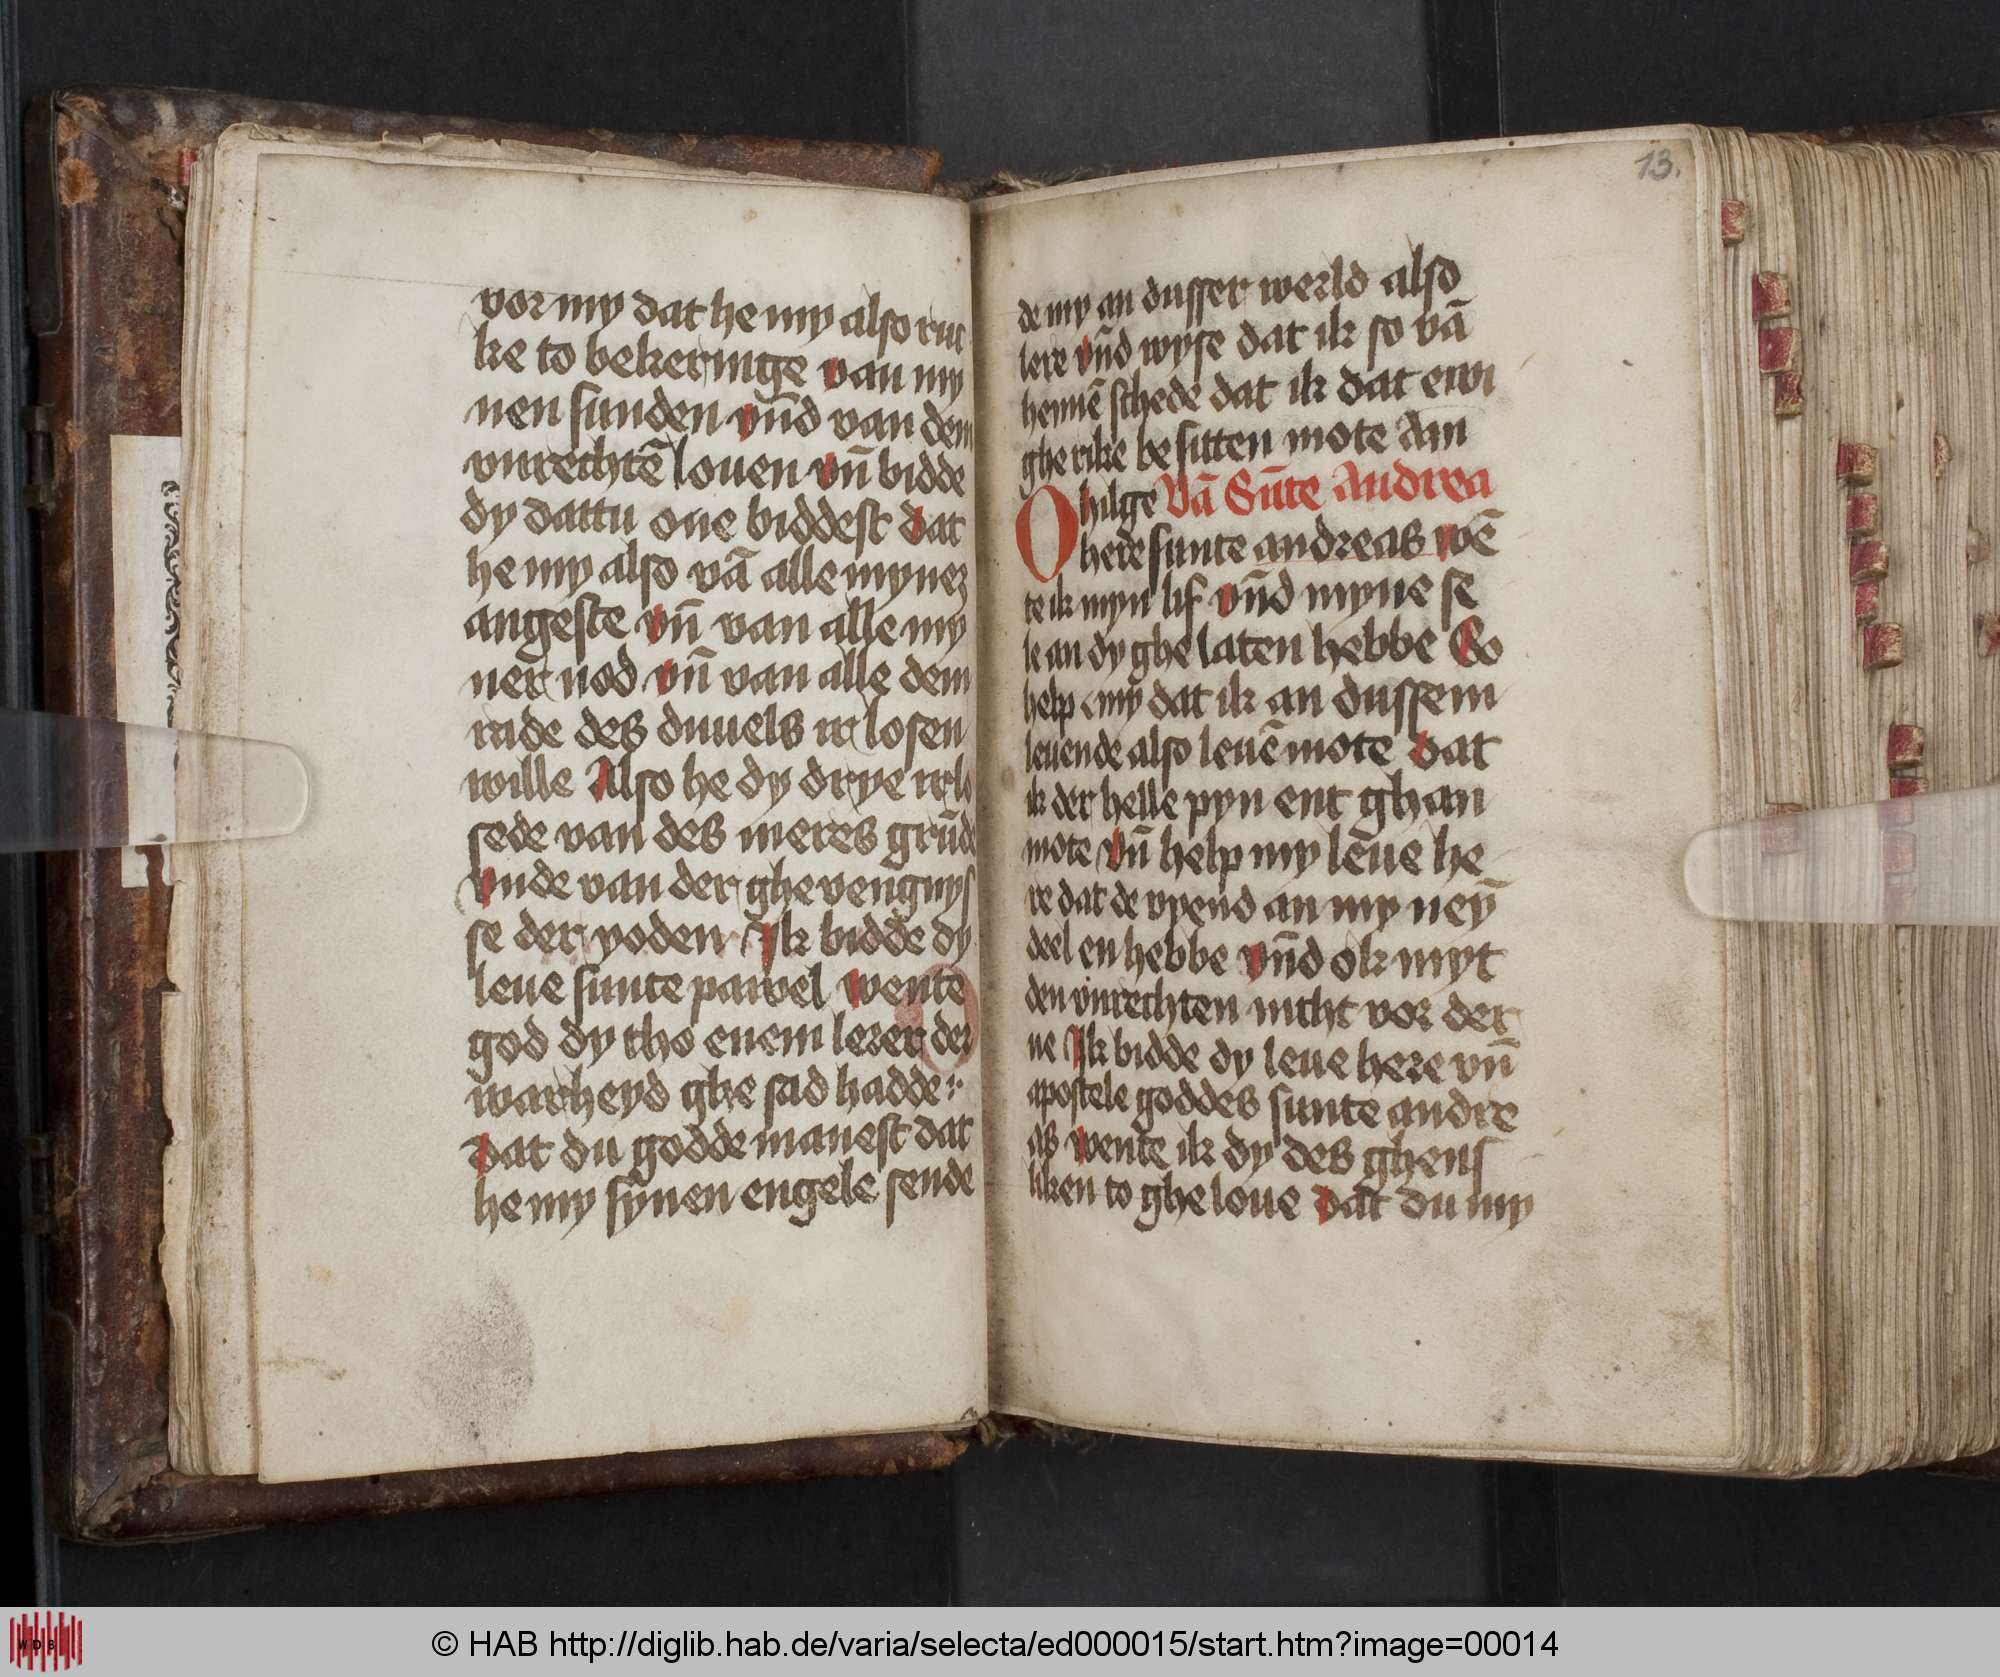 vor my dat he my also ruc
ke to bekeringe van my
nen sunden vn̄d van dem
vnrechtē louen vn̄ bidde
dy dattu one biddest dat
he my also vā alle myner
angeste vn̄ van alle my
ner nod vn̄ van alle dem
rade des duuels ir losen
wille Also he dy drye irlo
sede van des meres grūde
Vnde van der ghevengnys
se der yoden Ik bidde dy
leue sunte pawel wente
god dy tho enem lerer der
warheyd ghe sad hadde
Dat du godde manest dat
he my synen engele sende
13.
de my an dusser werld also
lere vn̄d wyse dat ik so vā
hennē schede dat ik dat ewi
ghe rike be sitten mote Am
O hilge Vā Sūte Andrea
here sunte andreas wē
te ik myn lif vn̄d myne se
le an dy ghe laten hebbe So
help my dat ik an dussem
leuende also leuē mote dat
ik der helle pyn ent ghan
mote Vn̄ help my leue he
re dat de vyend an my neȳ
deel en hebbe vn̄d ok myt
den vnrechten nicht vor der
ue Ik bidde dy leue here vn̄
apostele goddes sunte andre
as wente ik dy des ghens
liken to ghe loue dat du my
WDB
© HAB http://diglib.hab.de/varia/selecta/ed000015/start.htm?image=00014